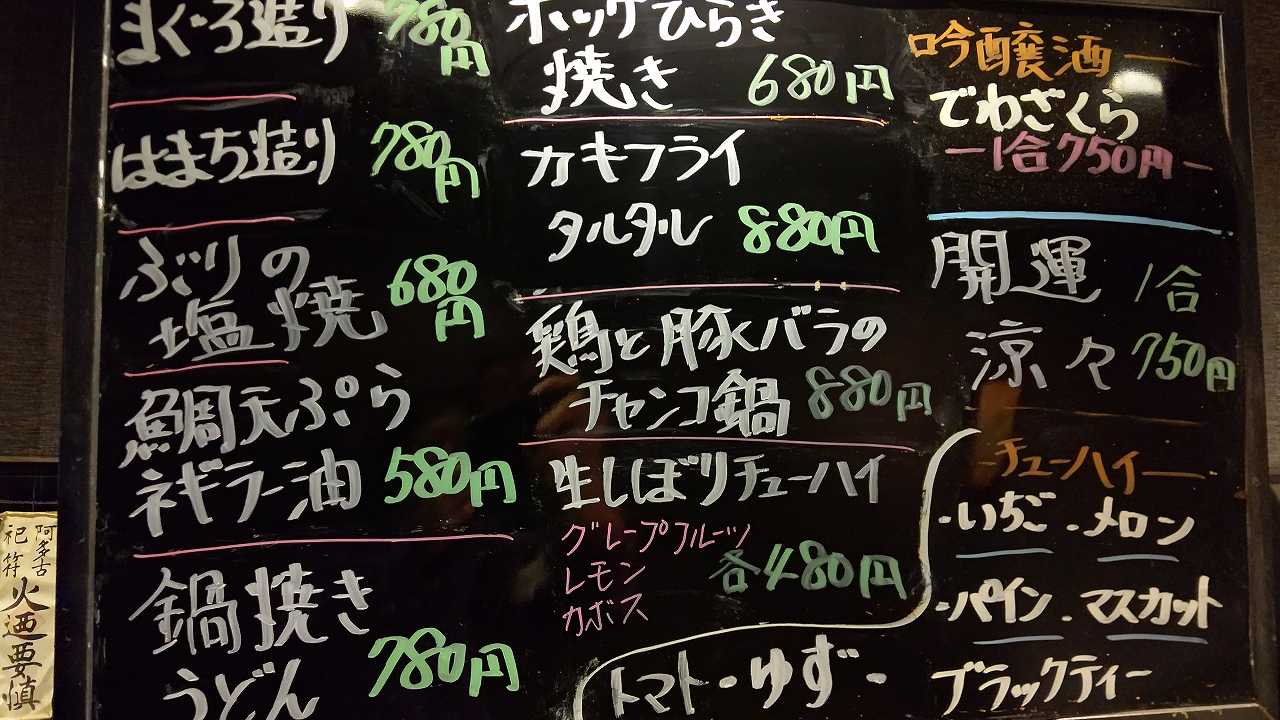 まぐろ造り 780円
はまち造り 780円
ぶりの
塩焼 680円
鯛天ぷら
ネギラー油 580円
鍋焼き
うどん 780円
ホッケひらき
焼き 680円
カキフライ
タルタル 880円
鶏と豚バラの
チャンコ鍋 880円
生しぼりチューハイ
グレープフルーツ
レモン 各480円
カボス
吟醸酒
でわざくら
1合750円
開運 1合
涼々 750円
チューハイ
・いちご ・メロン
・パイン ・マスカット
トマト・ゆず・
ブラックティー
阿多古
祀符
火迺要慎